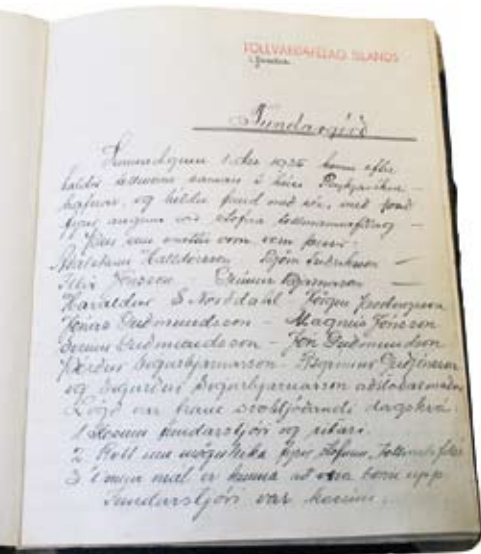 TOLLVARÐAFÉLAG ÍSLANDS
Fundargérð
Sunnudaginn 1. des 1935 komu eftir
taldir tollmenn saman á húsi Reykjavíkur
hafnar, og héldu fund með sér, með það
fyrir augum að stofna tollmannafélag –
Þeir sem mættir voru vom þessir:
Halldórsson – Björn Friðriksson –
Jónsson – Grímur Bjarnason –
Haraldur S Norðdahl – Jörgen Þorbergsson
Jónas Guðmundsson – Magnús Jónsson
Guðmundsson – Jón Guðmundsson
Þórður Sigurbjarnarson
og Sigurður Sigurbjarnarson aðstoðarmaður
Lögð var fram svohljóðandi dagskrá:
1 Kosinn fundarstjóri og ritari.
2 Rætt um möguleika fyrir stofnun
3 Önnur mál er kunna að vera borin upp
Fundarstjóri var kosinn